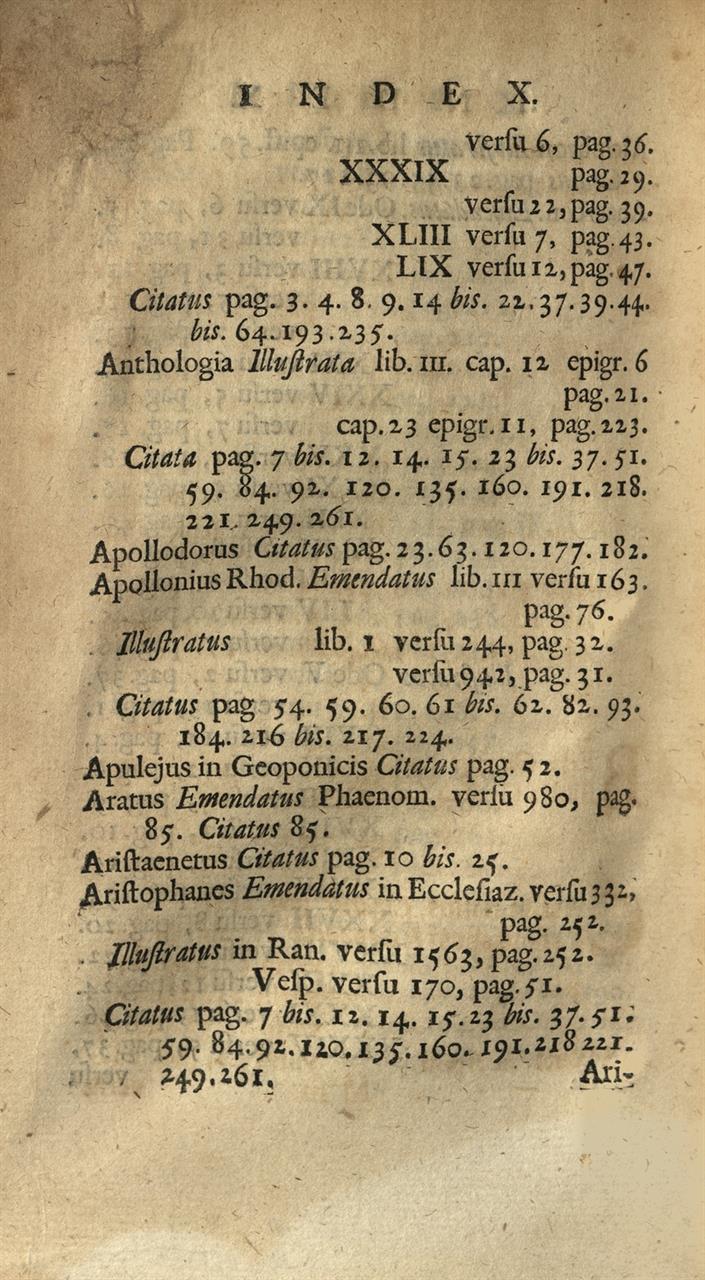 I N D E X.
verſu 6, pag. 36.
XXXIX pag. 29.
verſu 22, pag. 39.
XLIII verſu 7, pag. 43.
LIX verſu 12, pag. 47.
Citatus pag. 3. 4. 8. 9. 14 bis. 22. 37. 39. 44.
bis. 64. 193. 235.
Anthologia Illuſtrata lib. III. cap. 12 epigr. 6
pag. 21.
cap. 23 epigr. 11, pag. 223.
Citata pag. 7 bis. 12. 14. 15. 23 bis. 37. 51.
59. 84. 92. 120. 135. 160. 191. 218.
221. 249. 261.
Apollodorus Citatus pag. 23. 63. 120. 177. 182.
Apollonius Rhod. Emendatus lib. III verſu 163.
pag. 76.
Illuſtratus lib. I verſu 244, pag. 32.
verſu 942, pag. 31.
Citatus pag 54. 59. 60. 61 bis. 62. 82. 93.
184. 216 bis. 217. 224.
Apulejus in Geoponicis Citatus pag. 52.
Aratus Emendatus Phaenom. verſu 980, pag.
85. Citatus 85.
Ariſtaenetus Citatus pag. 10 bis. 25.
Ariſtophanes Emendatus in Eccleſiaz. verſu 332,
pag. 252.
Illuſtratus in Ran. verſu 1563, pag. 252.
Veſp. verſu 170, pag. 51.
Citatus pag. 7 bis. 12. 14. 15. 23 bis. 37. 51.
59. 84. 92. 120. 135. 160. 191. 218 221.
249. 261.
Ari-